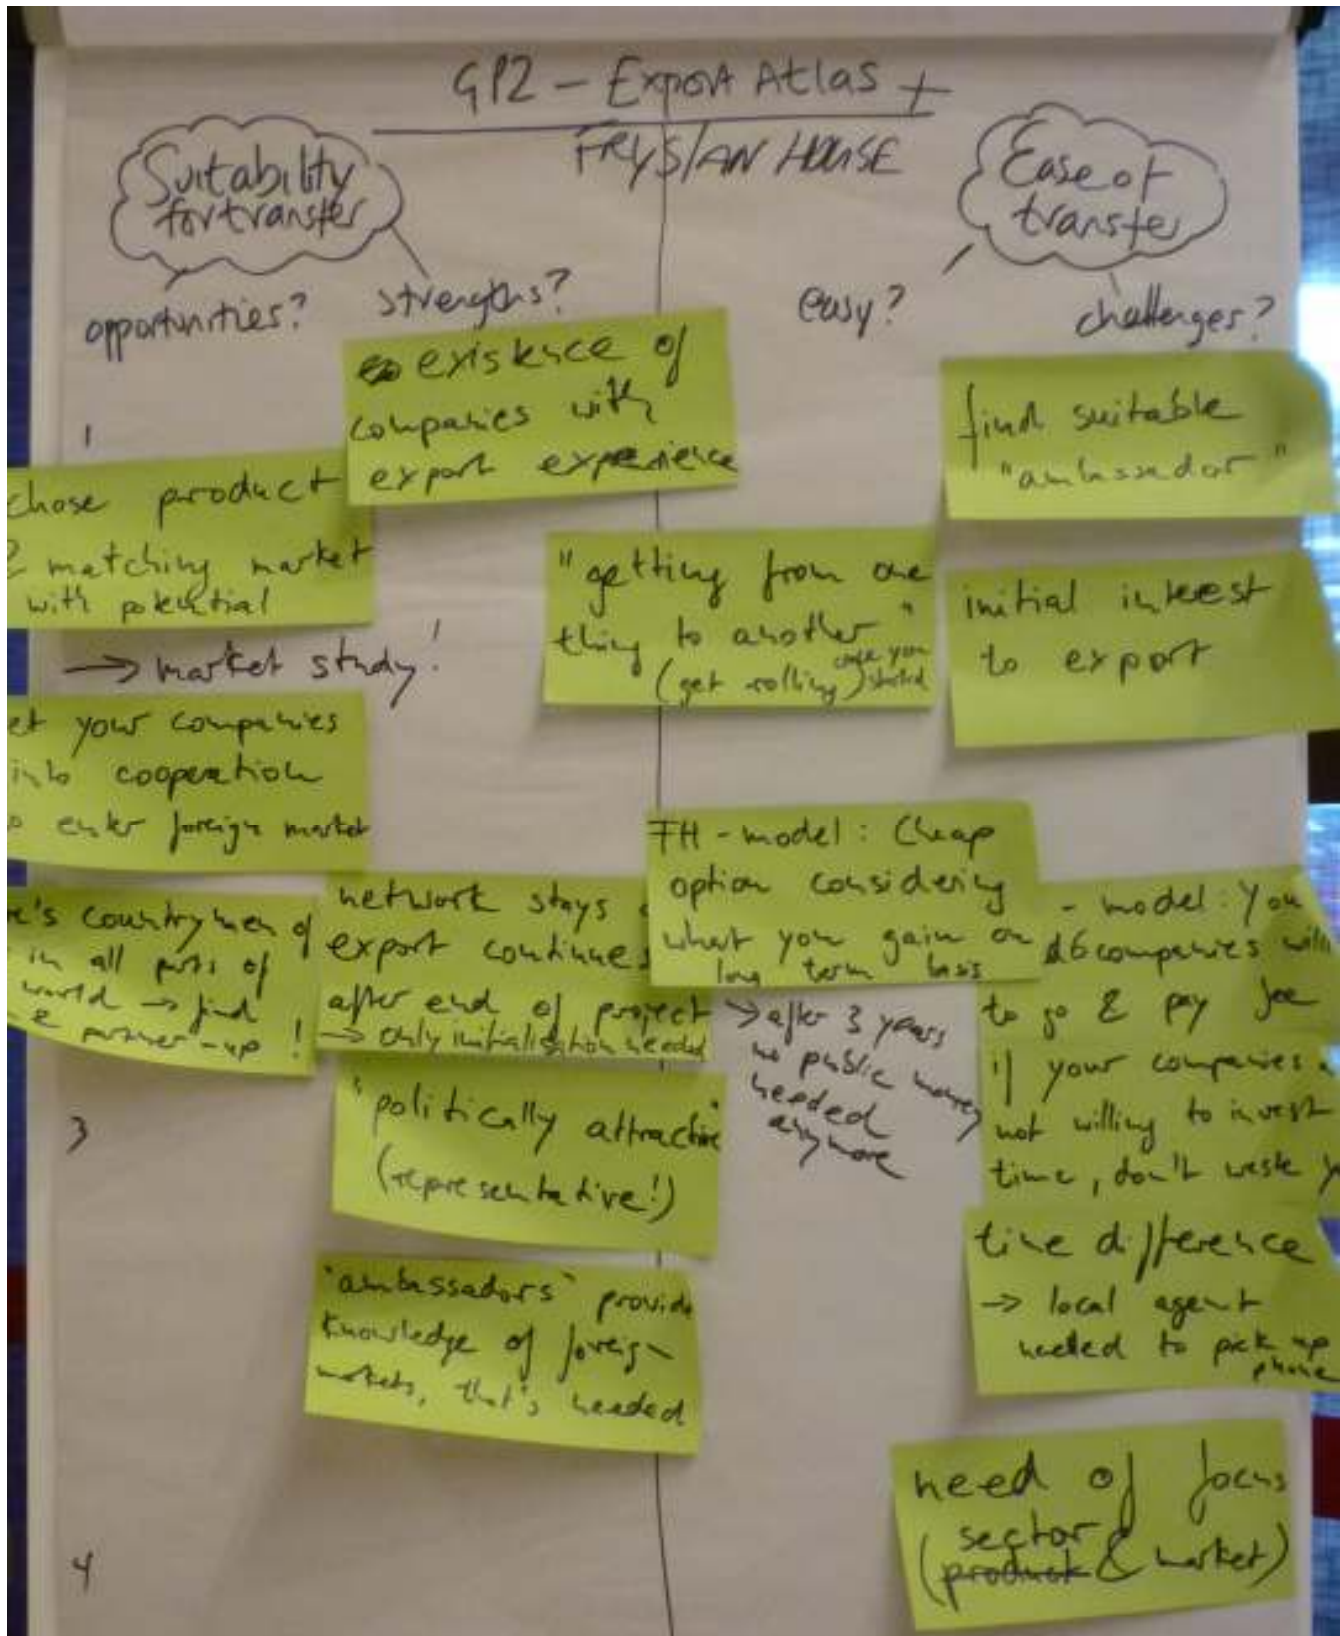 GP2 - Export Atlas +
FRYSLAN HOUSE
Suitability
for transfer
opportunities?
strengths?
Ease of
transfer
easy?
challenges?
1
chose product
& matching market
with potential
→ market study!
et your companies
into cooperation
o enter foreign market
e's countrymen of
in all parts of
world → find
e partner-up!
3
4
existence of
companies with
export experience
network stays
export continues
after end of project
→ only initialisation needed
"politically attractive"
(representative!)
"ambassadors" provide
knowledge of foreign
markets, that's needed
"getting from one
thing to another"
(get rolling) once you
started
FH - model: Cheap
option considering
what you gain on
long term basis
→ after 3 years
no public money
needed
anymore
find suitable
"ambassador"
initial interest
to export
- model: You
d 6 companies willi
to go & pay fee
if your companies
not willing to invest
time, don't waste y
time difference
→ local agent
needed to pick up
phone
need of focus
sector
(product & market)